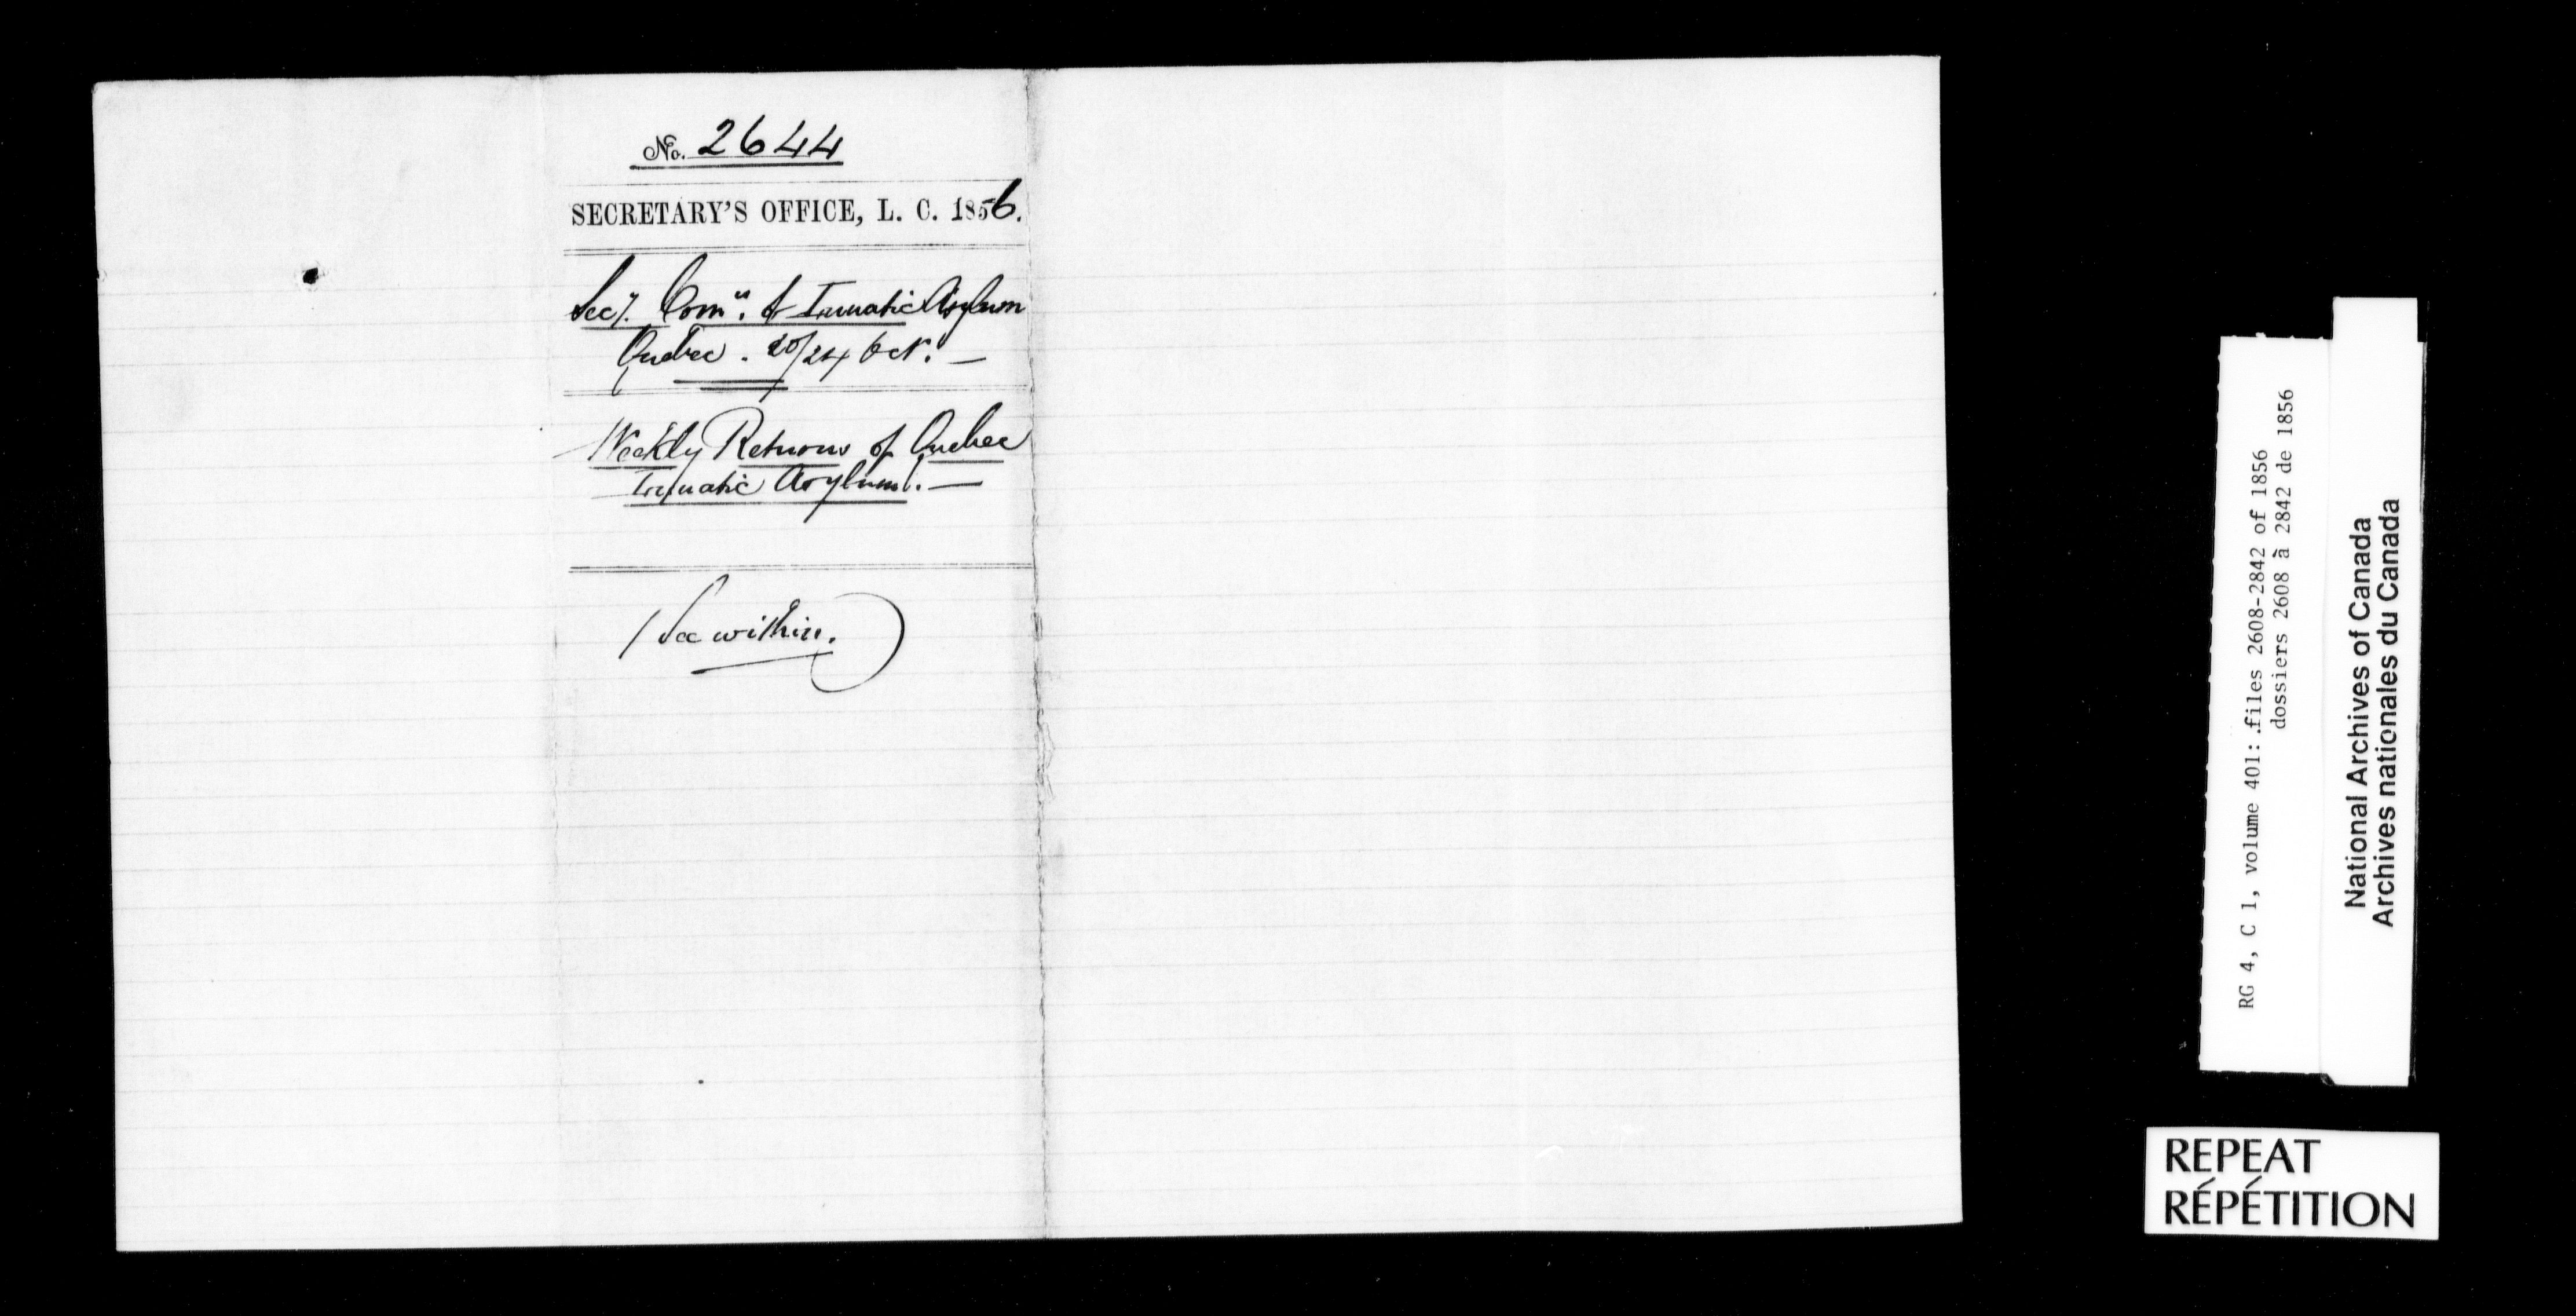 No. 2644
SECRETARY'S OFFICE, L. C. 1856.
Secy. Comrs. of Lunatic Asylum
Quebec. 20/24 Oct. —
Weekly Returns of Quebec
Lunatic Asylum. —
(See within.)
RG 4, C 1, volume 401: files 2608-2842 of 1856
dossiers 2608 à 2842 de 1856
National Archives of Canada
Archives nationales du Canada
REPEAT
RÉPÉTITION